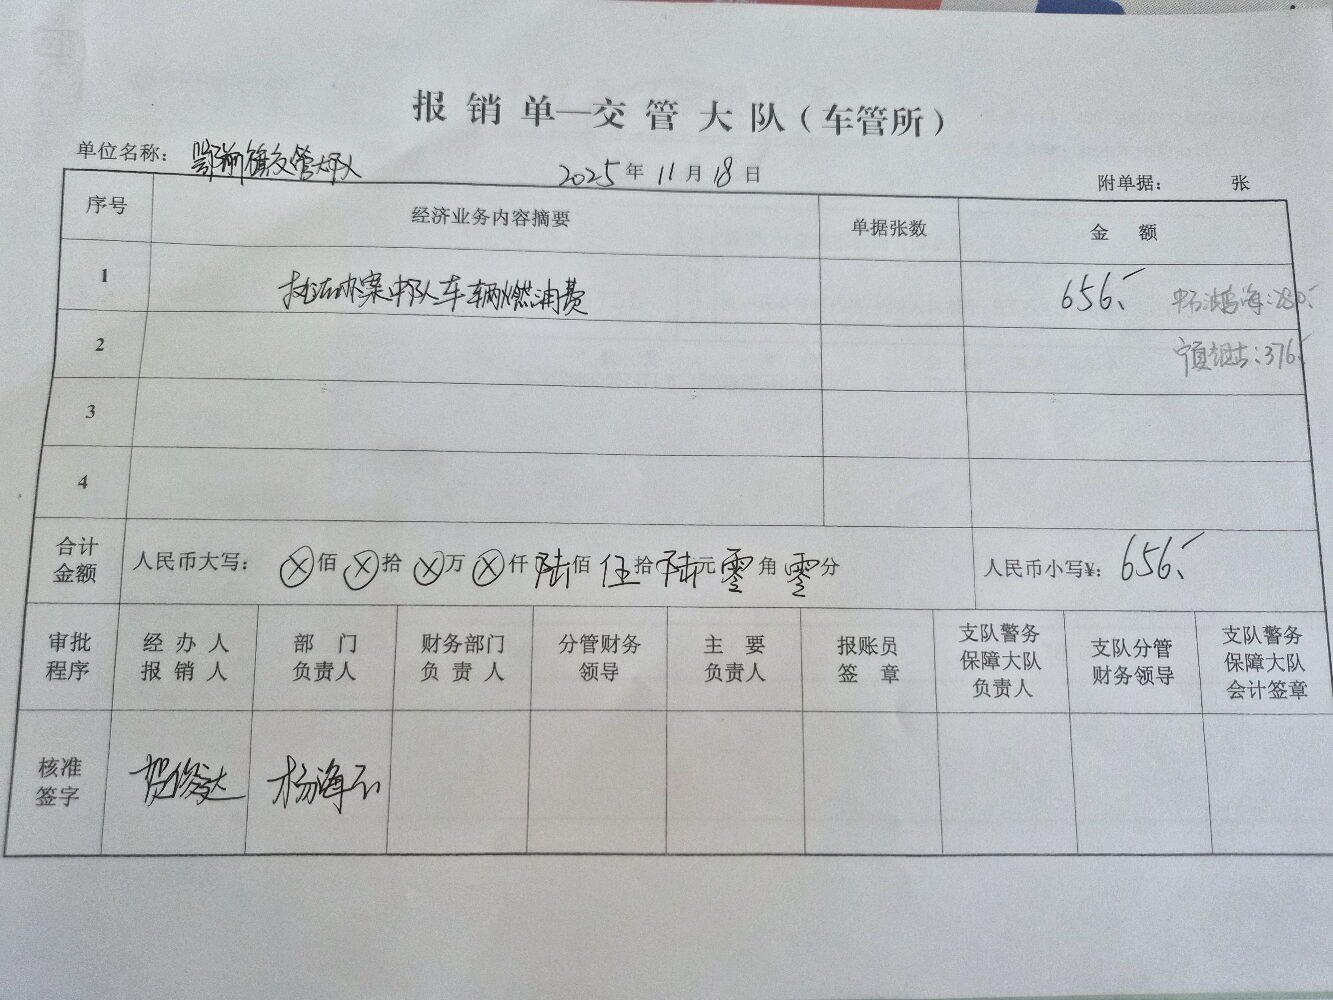 报 销 单—交 管 大 队（车管所）
单位名称： 鄂前旗交管大队 2025 年 11 月 18 日 附单据： 张
序号 经济业务内容摘要 单据张数 金 额
1 办案中队车辆燃油费 656.
2 376.
3
4
合计金额 人民币大写： ⊗佰 ⊗拾 ⊗万 ⊗仟 陆佰 伍拾 陆元 零角 零分 人民币小写¥： 656.
审批程序 经 办 人 报 销 人 部 门 负责人 财务部门 负 责 人 分管财务 领导 主 要 负责人 报账员 签 章 支队警务 保障大队 负责人 支队分管 财务领导 支队警务 保障大队 会计签章
核准签字 贺俊达 杨海